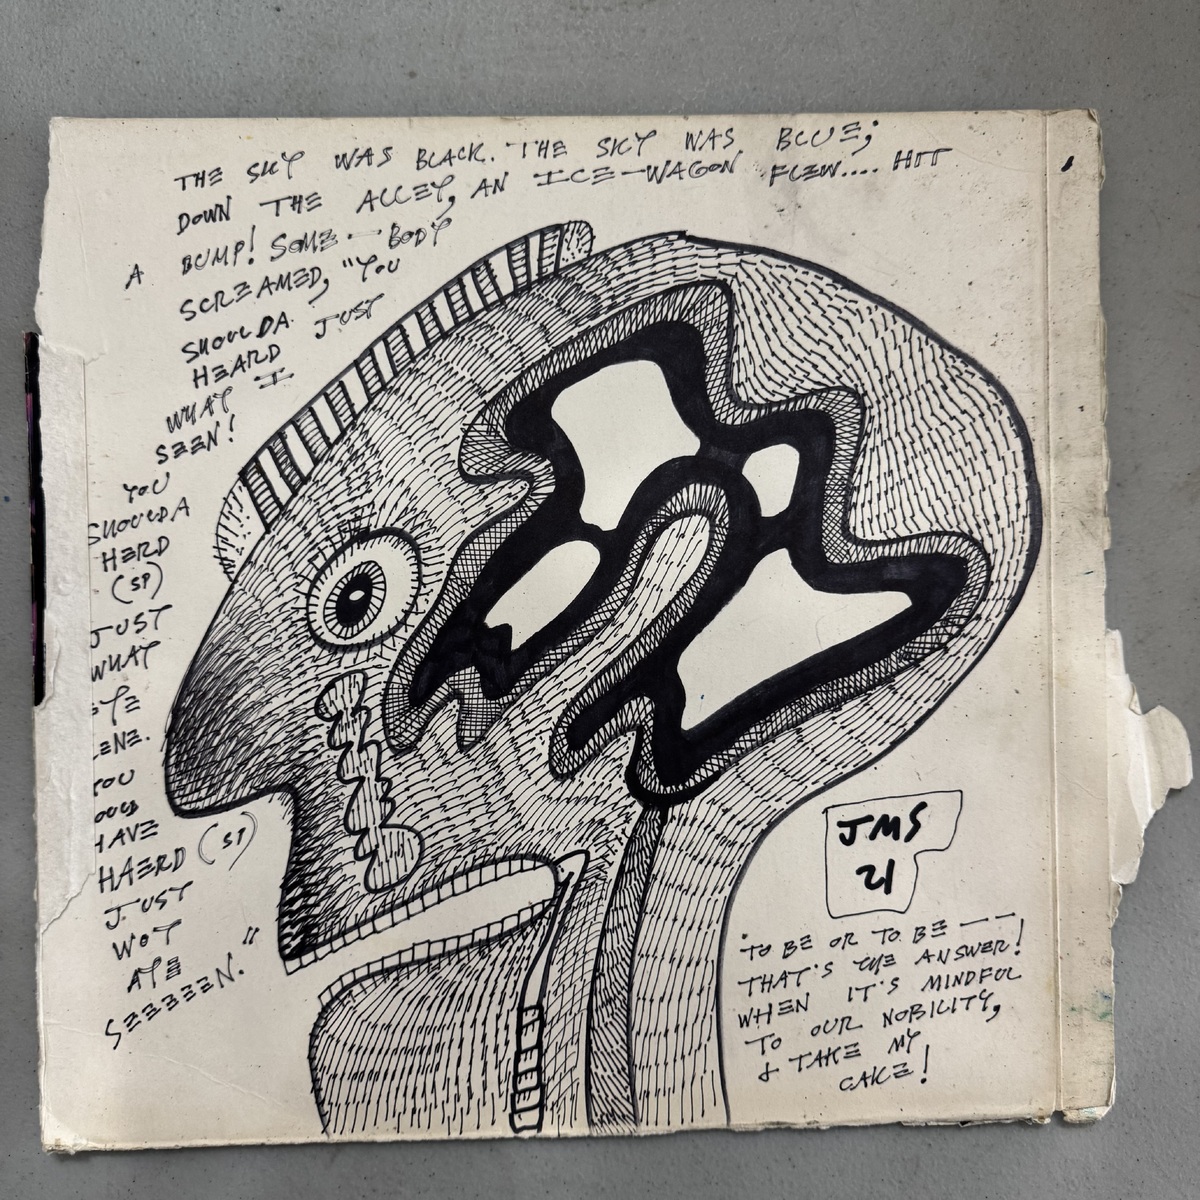 THE SKY WAS BLACK. THE SKY WAS BLUE;
DOWN THE ALLEY, AN ICE-WAGON FLEW.... HIT
A BUMP! SOME-BODY
SCREAMED, "YOU
SHOULDA
HEARD JUST
WHAT I
SEEN!
YOU
SHOULDA
HERD
(SP)
JUST
WHAT
EYE
ENE.
YOU
HAVE
HAERD (SP)
JUST
WOT
AYE
SEEEEEN."
JMS
21
"TO BE OR TO BE --
THAT'S THE ANSWER!
WHEN IT'S MINDFUL
TO OUR NOBILITY,
& TAKE MY
CAKE!